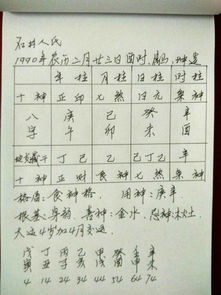 石井人民
1990年农历二月廿三日酉时,属马,坤造
年柱 月柱 日柱 时柱
十神 正印 七煞 日元 枭神
八 庚 己 癸 辛
字 午 卯 未 酉
丁己 乙 己丁乙 辛
十神 正财 食神 七煞 枭神
格局:食神格. 用神:庚辛
根基:身弱. 喜神:金水. 忌神:
大运4岁加4月交运.
戊 丁 丙 乙 甲 癸 壬 辛
寅 丑 子 亥 戌 酉 申 未
4 14 24 34 44 54 64 74